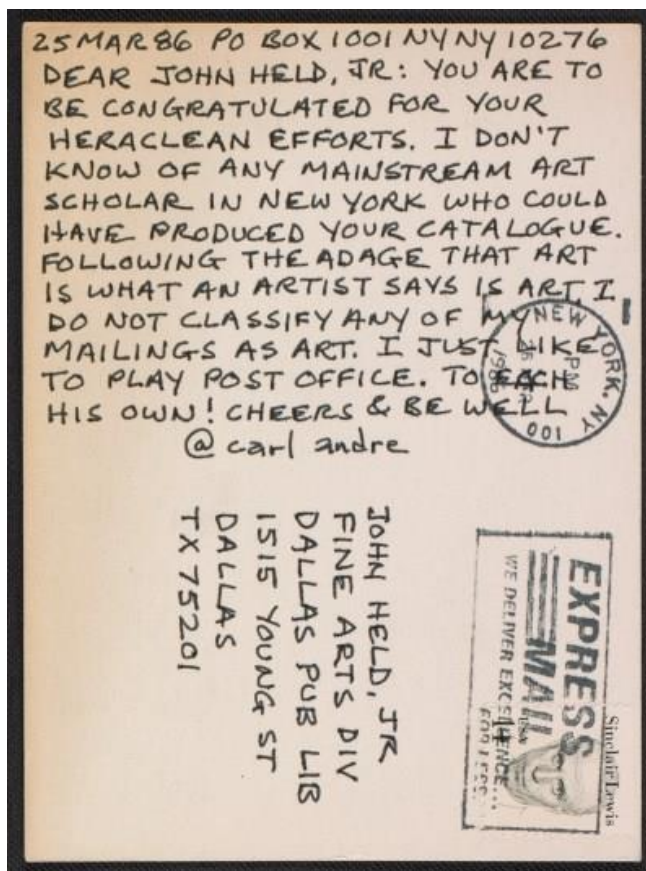 25 MAR 86 PO BOX 1001 NY NY 10276
DEAR JOHN HELD, JR: YOU ARE TO
BE CONGRATULATED FOR YOUR
HERACLEAN EFFORTS. I DON'T
KNOW OF ANY MAINSTREAM ART
SCHOLAR IN NEW YORK WHO COULD
HAVE PRODUCED YOUR CATALOGUE.
FOLLOWING THE ADAGE THAT ART
IS WHAT AN ARTIST SAYS IS ART, I
DO NOT CLASSIFY ANY OF MY
MAILINGS AS ART. I JUST LIKE
TO PLAY POST OFFICE. TO EACH
HIS OWN! CHEERS & BE WELL
@ carl andre
NEW YORK, NY 100
PM
1986
JOHN HELD, JR
FINE ARTS DIV
DALLAS PUB LIB
1515 YOUNG ST
DALLAS
TX 75201
EXPRESS
MAIL
WE DELIVER EXCELLENCE...
FOR LESS...
Sinclair Lewis
USA